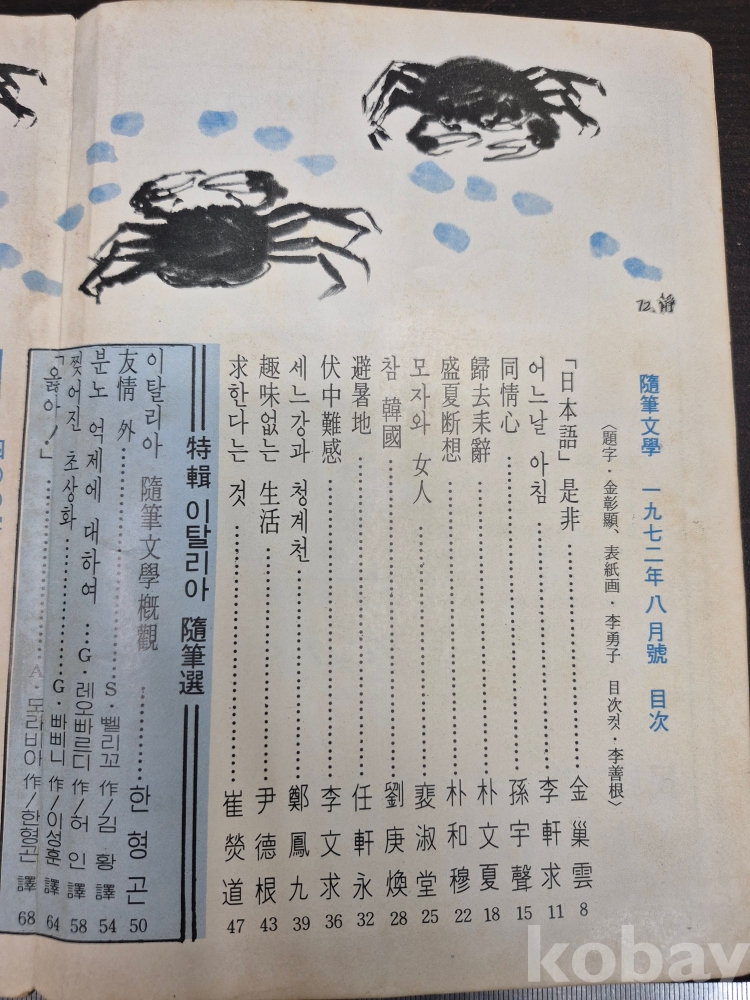 72. 靜
隨筆文學 一九七二年 八月號 目次
〈題字·金彰顯、表紙画·李勇子 目次컷·李善根〉
「日本語」是非 …… 金巢雲 8
어느날 아침 …… 李軒求 11
同情心 …… 孫宇聲 15
歸去来辭 …… 朴文夏 18
盛夏断想 …… 朴和穆 22
모자와 女人 …… 裵淑堂 25
참 韓國 …… 劉庚煥 28
避暑地 …… 任軒永 32
伏中難感 …… 李文求 36
세느강과 청계천 …… 鄭鳳九 39
趣味없는 生活 …… 尹德根 43
求한다는 것 …… 崔熒道 47
特輯 이탈리아 隨筆選
이탈리아 隨筆文學槪觀 …… 한형곤 50
友情 外 …… S·뻴리꼬 作/김 황 譯 54
분노 억제에 대하여 …… G·레오빠르디 作/허 인 譯 58
찢어진 초상화 …… G·빠삐니 作/이성훈 譯 64
「옳아!」 …… A·모라비아 作/한형곤 譯 68
kobay